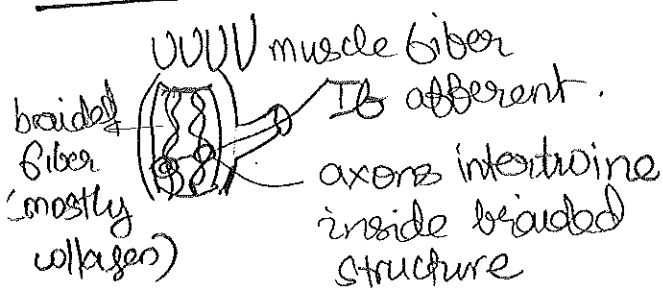 muscle fiber
Ib afferent.
braided
fiber
(mostly
collagen)
axons intertwine
inside braided
structure